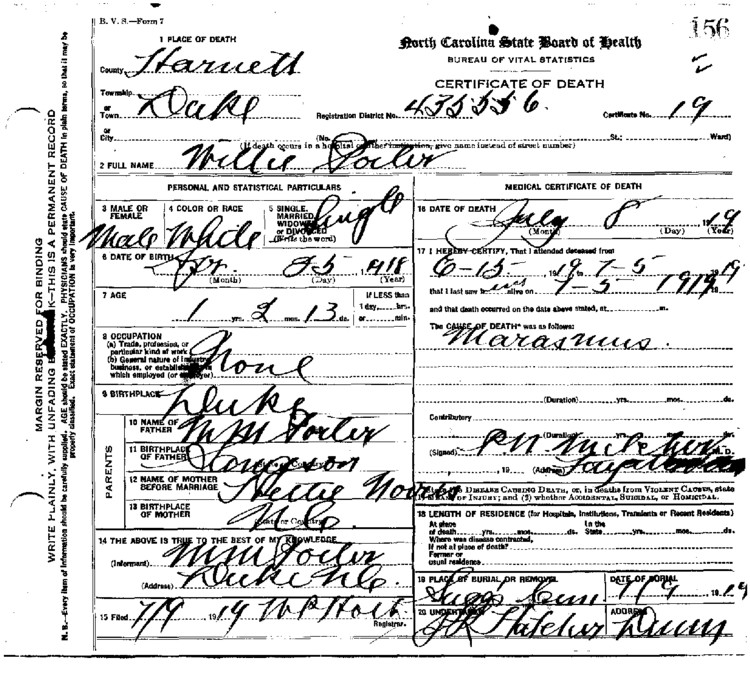 B. V. S.—Form 7
156
1 PLACE OF DEATH
County Harnett
Township
or
Town Duke
or
City
North Carolina State Board of Health
BUREAU OF VITAL STATISTICS
CERTIFICATE OF DEATH
Registration District No. 435556. Certificate No. 19
(No. St.; Ward)
(If death occurs in a hospital or other institution, give name instead of street number)
2 FULL NAME Willie Porter
PERSONAL AND STATISTICAL PARTICULARS
3 MALE OR FEMALE Male
4 COLOR OR RACE White
5 SINGLE, MARRIED, WIDOWED OR DIVORCED (Write the word) Single
6 DATE OF BIRTH Apr. 25, 1918
(Month) (Day) (Year)
7 AGE 1 yrs. 2 mos. 13 ds.
If LESS than
1 day, hrs.
or min.
8 OCCUPATION
(a) Trade, profession, or
particular kind of work
(b) General nature of industry,
business, or establishment in
which employed (or employer) None
9 BIRTHPLACE Duke
PARENTS
10 NAME OF FATHER M M Porter
11 BIRTHPLACE OF FATHER
(State or Country)
12 NAME OF MOTHER BEFORE MARRIAGE
13 BIRTHPLACE OF MOTHER N. C.
(State or Country)
14 THE ABOVE IS TRUE TO THE BEST OF MY KNOWLEDGE
(Informant) M M Porter
(Address) Duke N C
15 Filed 7/9 1919 W P Holt
Registrar.
MEDICAL CERTIFICATE OF DEATH
16 DATE OF DEATH July 8 1919
(Month) (Day) (Year)
17 I HEREBY CERTIFY, That I attended deceased from
6-15 1919 7-5 1919
that I last saw h alive on 7-5 1919
and that death occurred on the date above stated, at m.
The CAUSE OF DEATH* was as follows:
Marasmus.
(Duration) yrs. mos. ds.
Contributory
(Duration) yrs. mos. ds.
(Signed) M.D.
, 19 (Address)
*State the DISEASE CAUSING DEATH, or, in deaths from VIOLENT CAUSES, state
MEANS OF INJURY; and (2) whether ACCIDENTAL, SUICIDAL, or HOMICIDAL.
18 LENGTH OF RESIDENCE (for Hospitals, Institutions, Transients or Recent Residents)
At place
of death yrs. mos. ds.
In the
State yrs. mos. ds.
Where was disease contracted,
if not at place of death?
Former or
usual residence
19 PLACE OF BURIAL OR REMOVAL
DATE OF BURIAL 7/9 1919
20 UNDERTAKER Hatcher
ADDRESS Dunn
MARGIN RESERVED FOR BINDING
WRITE PLAINLY, WITH UNFADING BLACK INK—THIS IS A PERMANENT RECORD
N. B.—Every item of information should be carefully supplied. AGE should be stated EXACTLY. PHYSICIANS should state CAUSE OF DEATH in plain terms, so that it may be
properly classified. Exact statement of OCCUPATION is very important.